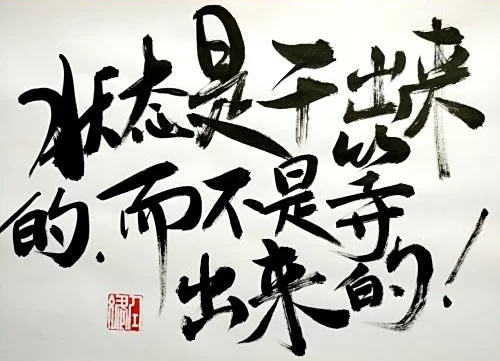 状态是干出来
的.而不是等
出来的!